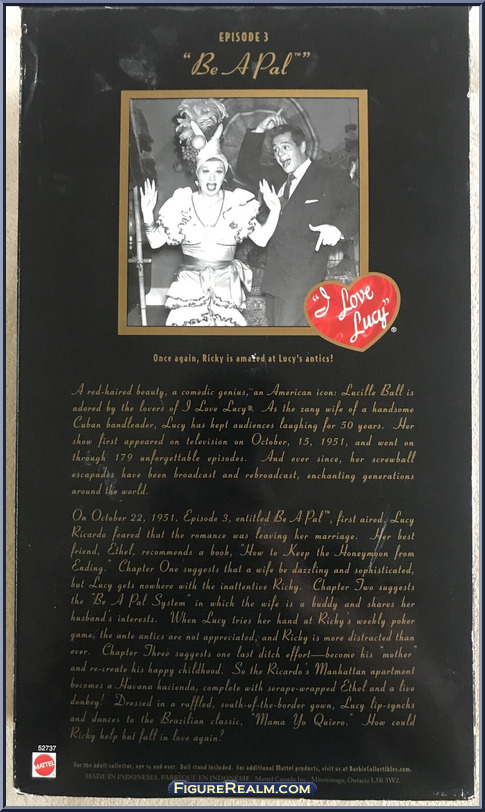 EPISODE 3
"Be A Pal™"
"I Love
Lucy"®
Once again, Ricky is amazed at Lucy's antics!
A red-haired beauty, a comedic genius, an American icon: Lucille Ball is
adored by the lovers of I Love Lucy®. As the zany wife of a handsome
Cuban bandleader, Lucy has kept audiences laughing for 50 years. Her
show first appeared on television on October, 15, 1951, and went on
through 179 unforgettable episodes. And ever since, her screwball
escapades have been broadcast and rebroadcast, enchanting generations
around the world.
On October 22, 1951, Episode 3, entitled Be A Pal™, first aired. Lucy
Ricardo feared that the romance was leaving her marriage. Her best
friend, Ethel, recommends a book, "How to Keep the Honeymoon from
Ending." Chapter One suggests that a wife be dazzling and sophisticated,
but Lucy gets nowhere with the inattentive Ricky. Chapter Two suggests
the "Be A Pal System" in which the wife is a buddy and shares her
husband's interests. When Lucy tries her hand at Ricky's weekly poker
game, the ante antics are not appreciated, and Ricky is more distracted than
ever. Chapter Three suggests one last ditch effort—become his "mother"
and re-create his happy childhood. So the Ricardo's Manhattan apartment
becomes a Havana hacienda, complete with serape-wrapped Ethel and a live
donkey! Dressed in a ruffled, south-of-the-border gown, Lucy lip-synchs
and dances to the Brazilian classic, "Mama Yo Quiero." How could
Ricky help but fall in love again?
52737
MATTEL
For the adult collector, age 14 and over. Doll stand included. For additional Mattel products, visit us at BarbieCollectibles.com.
MADE IN INDONESIA. FABRIQUÉ EN INDONÉSIE. Mattel Canada Inc., Mississauga, Ontario L5R 3W2
FIGUREREALM.COM